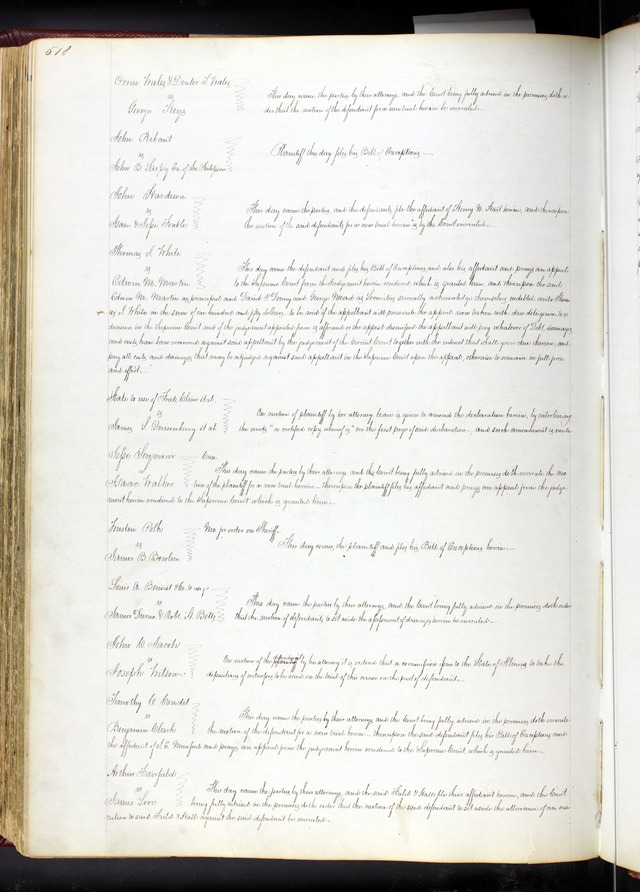 518
Orrin Wales & Dexter S Wales
vs
George Keys
This day came the parties by their attorneys, and the Court being fully advised in the premises, doth or-
der that the motion of the defendant for a new trial herein be overruled.
John Ribaut
vs
John B. Sarpy Ex. of
Plaintiff this day files his Bill of Exceptions
John Hardison
vs
Isaac & Jesse
This day came the parties, and the defendants file the affidavit of Henry N. Hart herein, and thereupon
the motion of the said defendants for a new trial herein is by the Court overruled.
Thomas J. White
vs
Edwin M. Martin
This day came the defendant and files his Bill of Exceptions and also his affidavit and prays an appeal
to the Supreme Court from the Judgement herein rendered which is granted him, and thereupon the said
Edwin M. Martin as principal and David and George Mead as Securities severally acknowledge themselves indebted unto Thom
as J. White in the sum of one hundred and fifty dollars to be void if the appellant will prosecute the appeal now taken with due deligence to a
decision in the Supreme Court and if the judgement appealed from is affirmed or the appeal dismissed the appellant will pay whatever of Debt, damages
and costs, have been recovered against said appellant by the judgement of the Circuit Court together with the interest that shall grow due thereon, and
pay all costs and damages that may be adjudged against said appellant in the Supreme Court upon the appeal, otherwise to remain in full force
and effect.
State to use of Fredk Cline et al
vs
James S Dusenbury et al
On motion of plaintiff by his attorney leave is given to amend the declaration herein, by interlining
the words "a certified copy whereof is" in the first page of said declaration, and such amendment is made.
Jesse Seymour
vs
Isaac Walker
Case.
This day came the parties by their attorneys and the Court being fully advised in the premises, doth overrule the mo
tion of the plaintiff for a new trial herein. thereupon the plaintiff files his affidavit and prays an appeal from the judge-
ment herein rendered to the Supreme Court which is granted him.
Trusten Polk
vs
James B. Bowlin
Mo for order on Sheriff.
This day comes the plaintiff and files his Bill of Exceptions herein.
Louis A. Benoist & Co. to use
vs
James Dunn & Robt. H. Betts
This day came the parties by their attorneys, and the Court being fully advised in the premises doth order
that the motion of defendants to set aside the assessment of damages herein be overruled.
John D. Jacobs
vs
Joseph Wilson
On motion of the by his attorney it is ordered that a commission issue to the State of Illinois to take the
depositions of witnesses to be read on the trial of this cause on the part of defendant.
Timothy C. Condit
vs
Benjamin Clark
This day came the parties by their attorneys and the Court being fully advised in the premises, doth overrule
the motion of the defendant for a new trial herein. thereupon the said defendant files his Bill of Exceptions and
the affidavit of Mumford and prays an appeal from the judgement herein rendered to the Supreme Court, which is granted him.
Arthur Fairfield
vs
James Love
This day came the parties by their attorneys, and the said Field & Hall file their affidavit herein, and the Court
being fully advised in the premises doth order that the motion of the said defendant to set aside the allowance of an exe
cution to said Field & Hall against the said defendant be overruled.